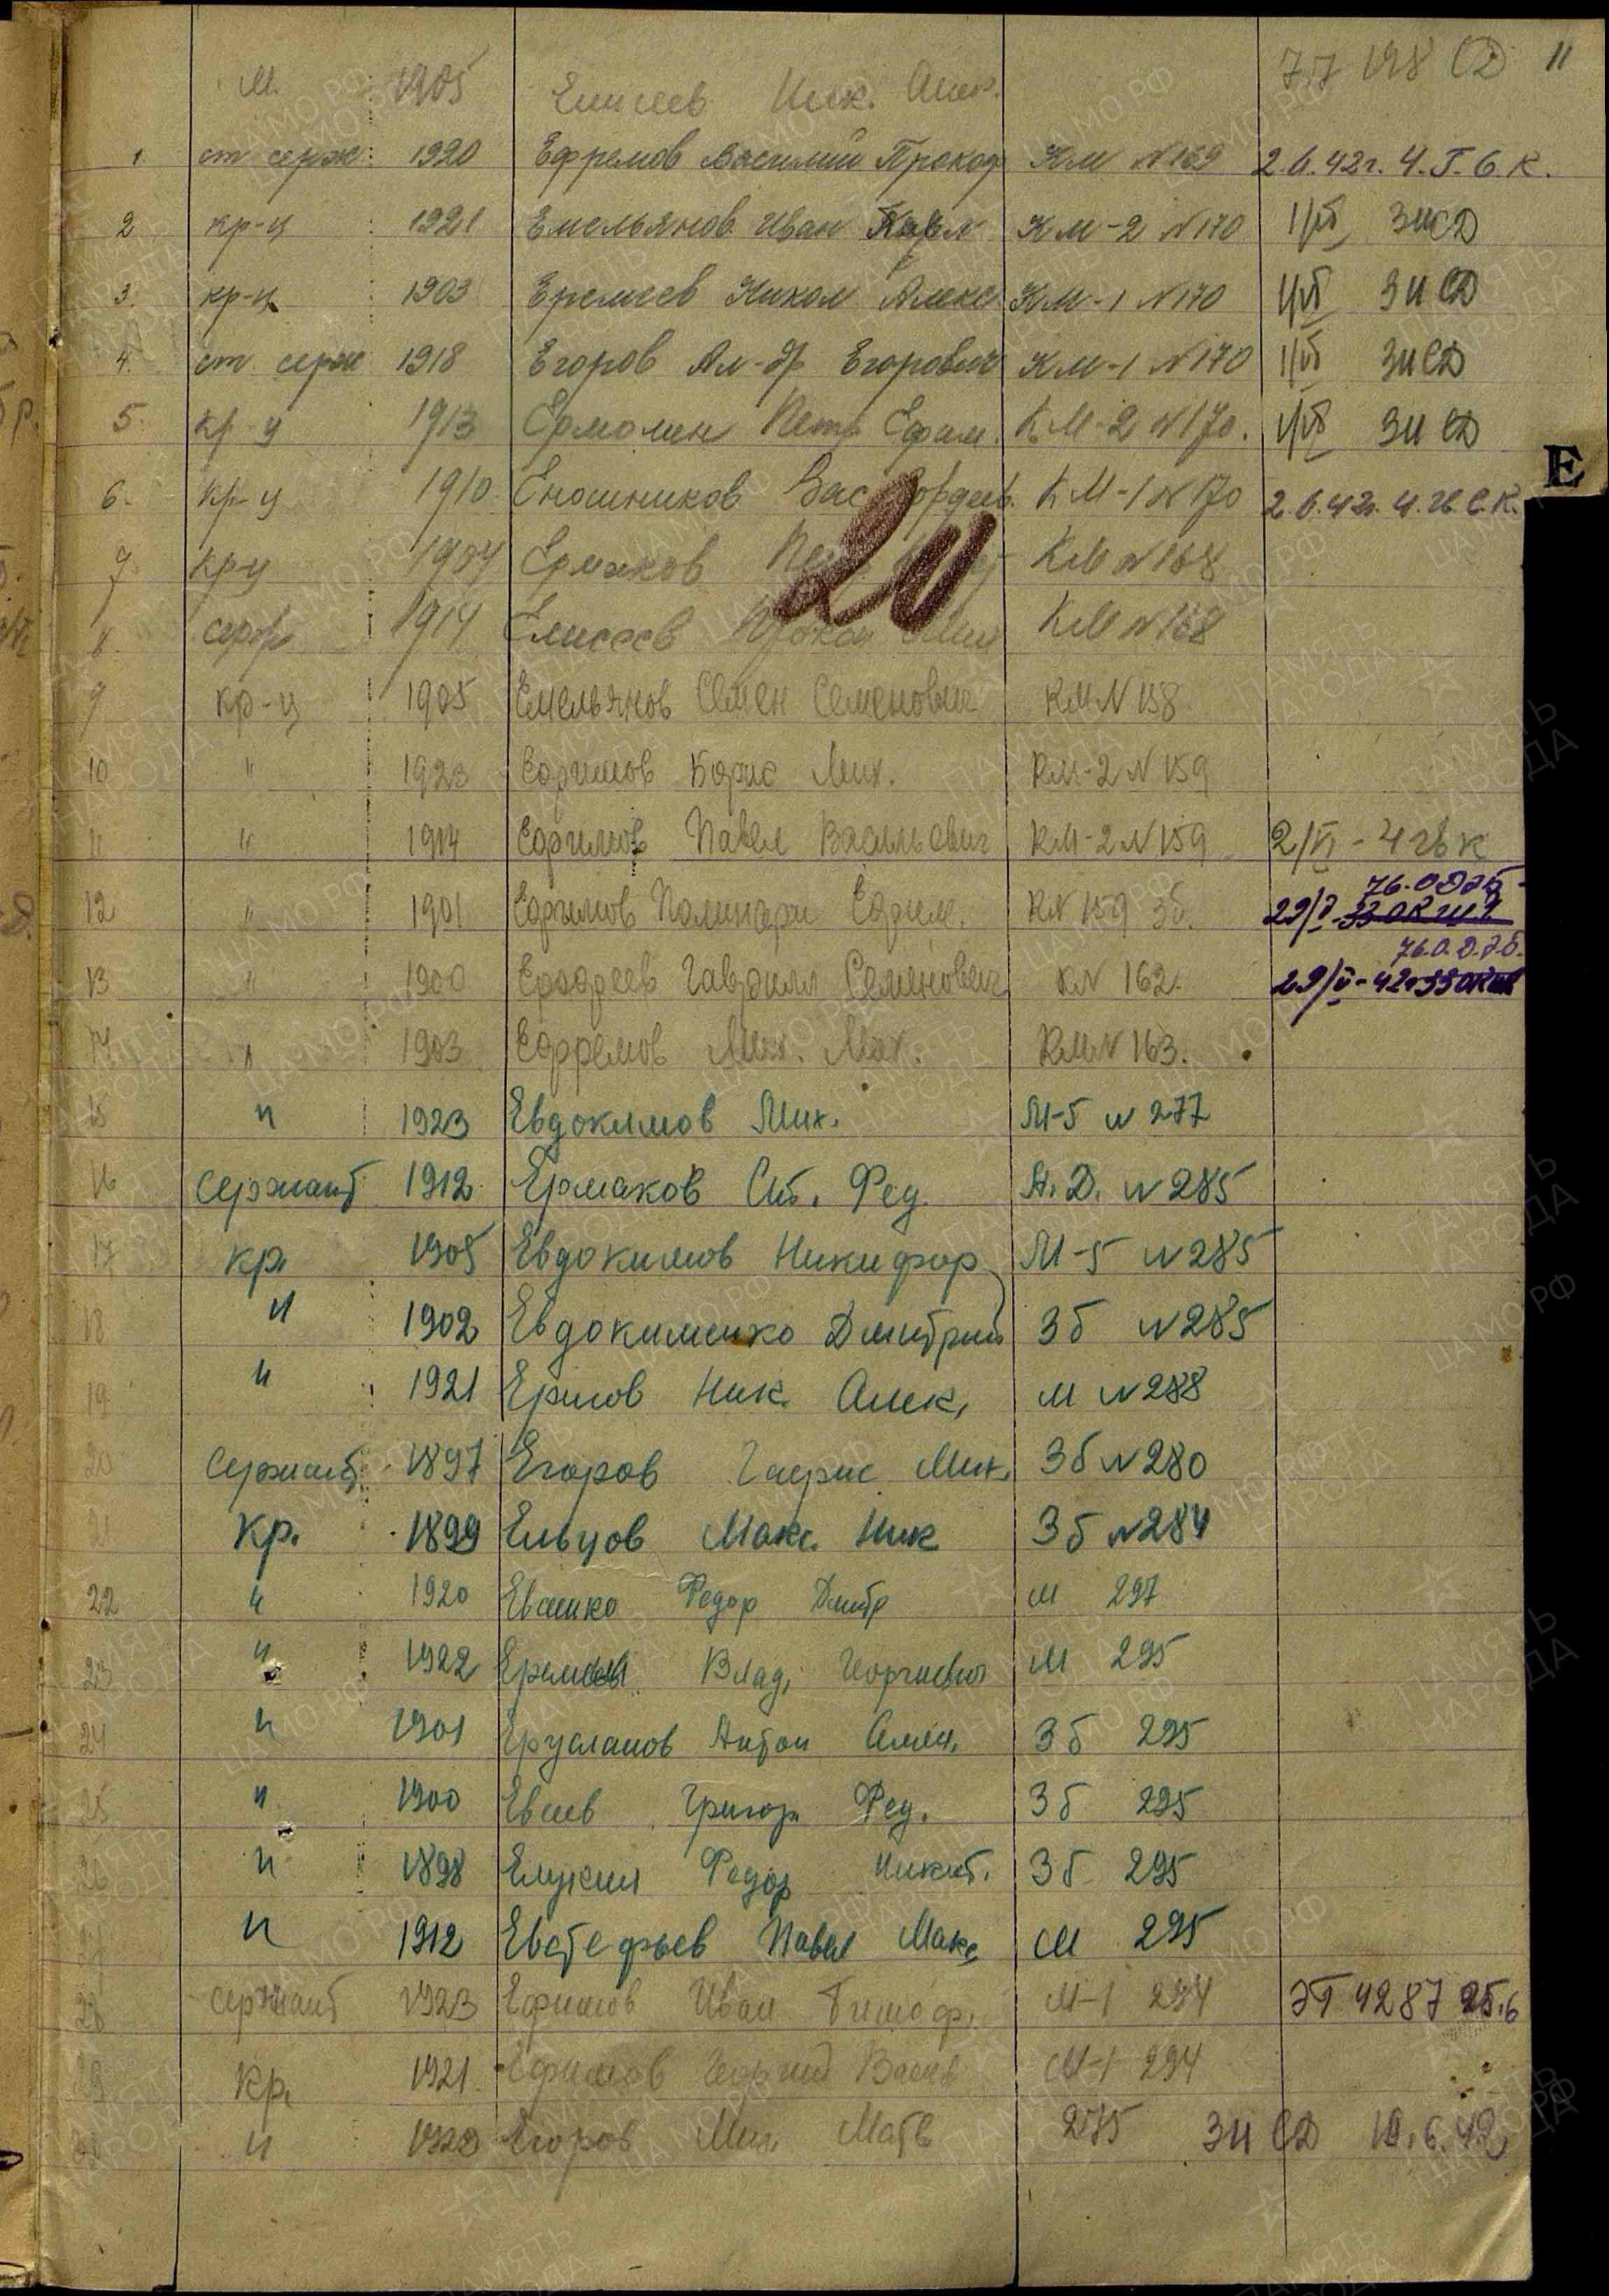 7.7 198 СД 11
м. 1905 Елисеев Ник. Алек.
1 ст серж. 1920 Ефремов Василий Прокоф КМ N 169 2.6.42г. 4.Г.б.К.
2 кр-ц 1921 Емельянов Иван КМ-2 N 170 1/VI ЗИСД
3. кр-ц 1903 Еремеев Никол Алекс. КМ-1 N 170 1/VI ЗИСД
4. ст. серж 1918 Егоров Ал-др Егорович КМ-1 N 170 1/VI ЗИСД
5. кр-ц 1913 Ермолин Петр Ефим. КМ-2 N 170. 1/VI ЗИСД
6. кр-ц 1910 Вас КМ-1 N 170 2.6.42г.
Е
20
7 кр-ц Ермаков КМ N 168
8. 1914 Елисеев Прокоп КМ N 168
9 кр-ц 1905 Емельянов Семен Семенович КМ N 158
10 " 1923 Ефимов Борис Мих. КМ-2 N 159
11 " 1914 Ефимов Павел Васильевич КМ-2 N 159 2/VI - 4 гв к
76.ОДЭБ
12 " 1901 Ефимов Ефим. КN 159 Зб. 29/V
76.О.Д.Э.Б.
13 " 1900 Гаврилл Семенович КN 162. 29/V-42г
14 " 1903 Ефремов Мих. Мах. КМ N 163.
15 " 1923 Евдокимов Мих. М-5 N 277
16 Сержант 1912 Ермаков Ст. Фед. А.Д. N 285
17 кр. 1905 Евдокимов Никифор М-5 N 285
18 " 1902 Евдокименко Дмитрий Зб N 285
19 " 1921 Ерилов Ник. Алек. М N 288
20 Сержант 1897 Егоров Мих. Зб N 280
21 Кр. 1899 Ельцов Макс. Ник Зб N 284
22 " 1920 Евсенко Федор Дмитр М 297
23 " 1922 Влад. Георгиевич М 295
24 " 1901 Ерусланов Антон Семен. Зб 295
25 " 1900 Евсеев Григор Фед. Зб 295
26 " 1898 Федор Никит. Зб 295
27 " 1912 Евстефьев Павел Макс М 295
28 Сержант 1923 Ефимов Иван Тимоф. М-1 294 ЭГ 4287 25.6
29 Кр. 1921 Ефимов Георгий Васил М-1 294
30 " Егоров Мих. Матв 275 ЗИ СД 10.6.42